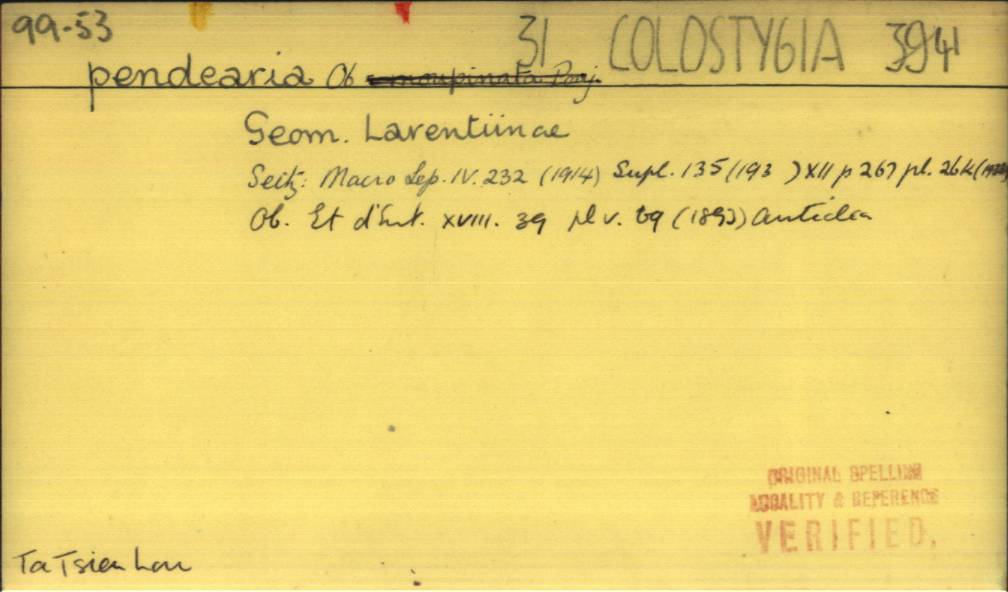 99-53
31 COLOSTYGIA 3941
pendearia Ob moupinata Pouj.
Geom. Larentiinae
Seitz: Macro Lep. IV. 232 (1914) Supl. 135 (193 ) XII p 267 pl. 26k
Ob. Et d'Ent. XVIII. 39 pl v. 69 (1893) Anticlea
ORIGINAL SPELLING
LOCALITY & REFERENCE
VERIFIED.
Ta Tsien Lou